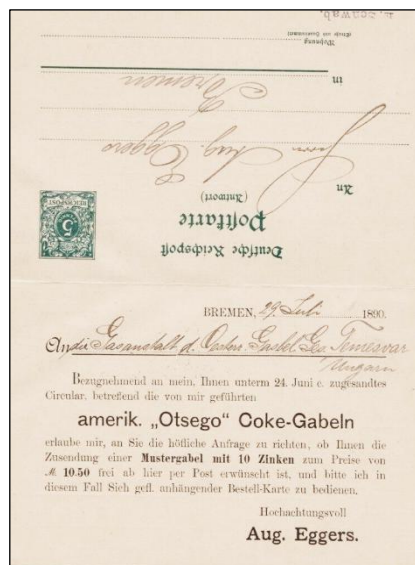 Deutsche Reichspost
Postkarte
(Antwort)
REICHSPOST
5
An Herrn Aug. Eggers
in Bremen
Wohnung
(Straße und Hausnummer)
BREMEN, 29. Juli 1890.
An die Gasanstalt d. Oesterr. Gasbel. Ges. Temesvar
Ungarn
Bezugnehmend an mein, Ihnen unterm 24. Juni c. zugesandtes
Circular, betreffend die von mir geführten
amerik. „Otsego“ Coke-Gabeln
erlaube mir, an Sie die höfliche Anfrage zu richten, ob Ihnen die
Zusendung einer Mustergabel mit 10 Zinken zum Preise von
M. 10.50 frei ab hier per Post erwünscht ist, und bitte ich in
diesem Fall Sich gefl. anhängender Bestell-Karte zu bedienen.
Hochachtungsvoll
Aug. Eggers.